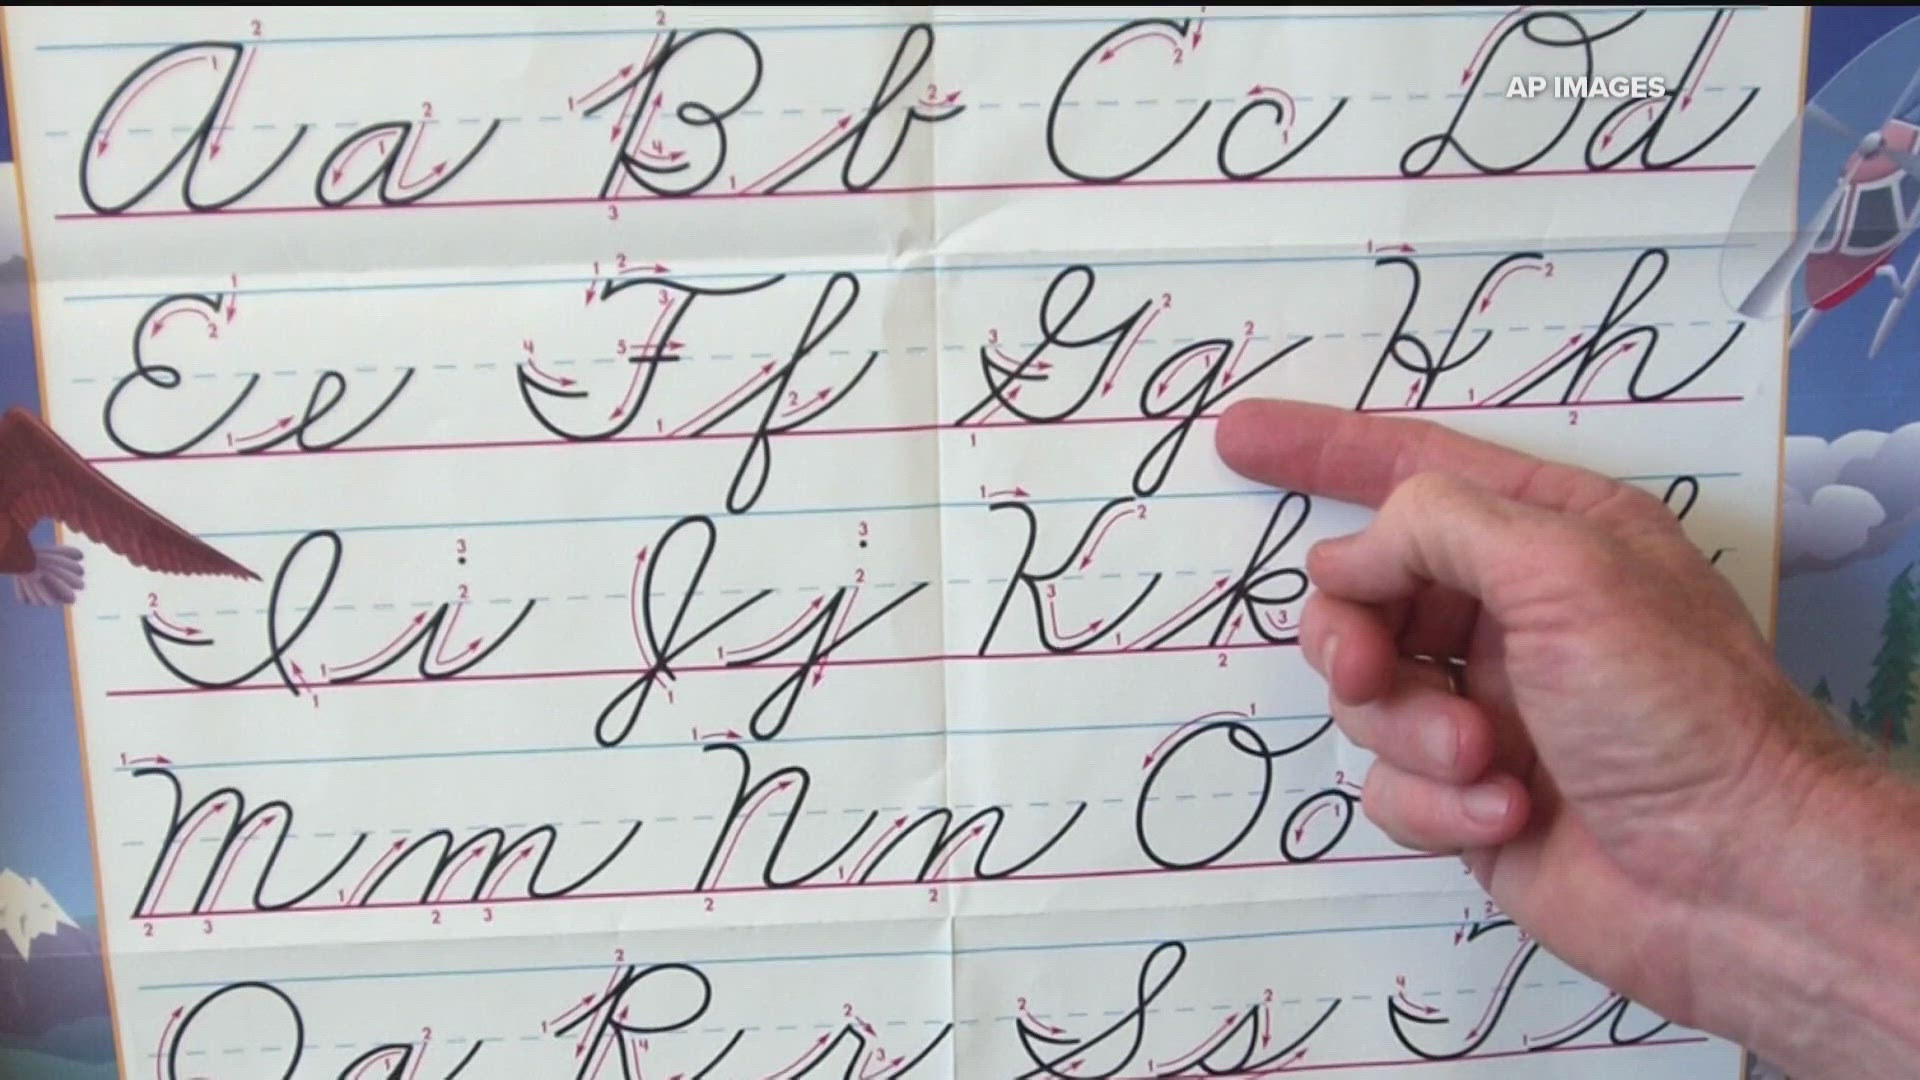 AP IMAGES
A a B b C c D d
E e F f G g H h
I i J j K k
M m N n O o
Q q R r S s T t